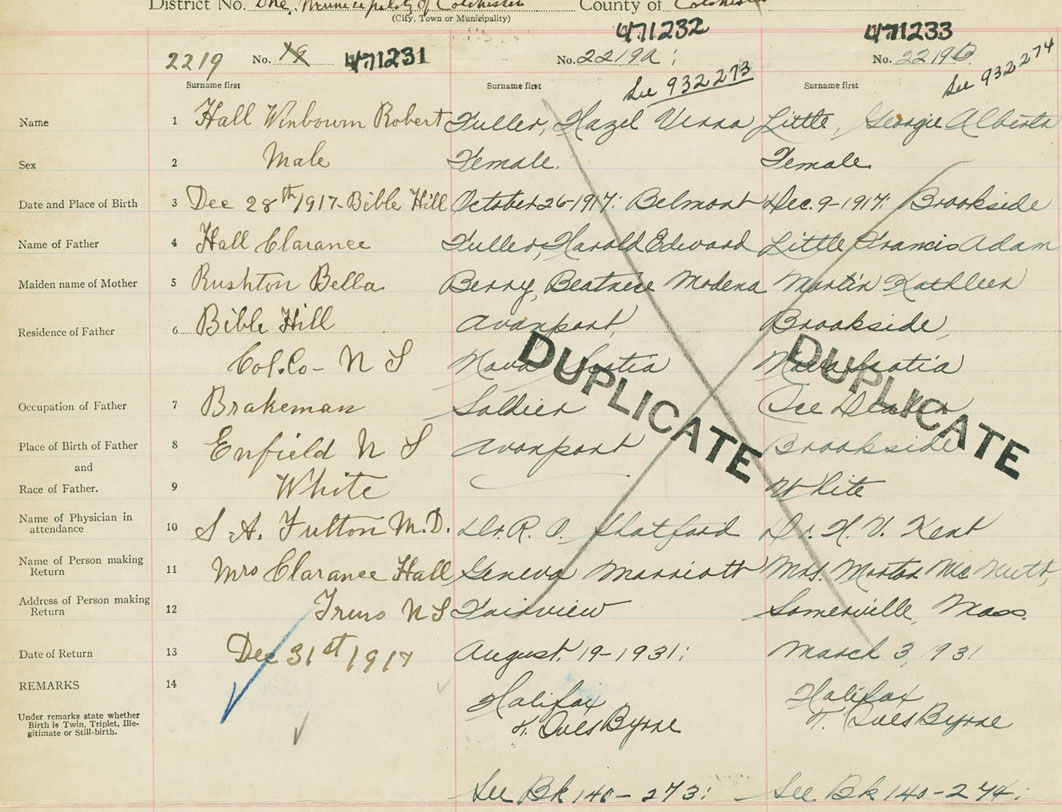 District No. One, Municipality of Colchester County of Colchester
(City, Town or Municipality)
471232 471233
2219 No. 471231 No. 2219A; No. 2219B
See 932273 See 932274
Surname first Surname first Surname first
Name 1 Hall Winbourn Robert Fuller, Hazel Verna Little, Georgie Alberta
Sex 2 Male Female. Female.
Date and Place of Birth 3 Dec 28th 1917- Bible Hill October 26-1917: Belmont Dec. 9-1917: Brookside
Name of Father 4 Hall Clarance Fuller, Harold Edward Little Francis Adam
Maiden name of Mother 5 Rushton Bella Berry, Beatrice Modena Martin Kathleen
Residence of Father 6 Bible Hill Avonport, Brookside,
Col. Co- N S Nova Scotia Nova Scotia
DUPLICATE DUPLICATE
Occupation of Father 7 Brakeman Soldier Ice Dealer
Place of Birth of Father 8 Enfield N S Avonport Brookside
and
Race of Father. 9 White White
Name of Physician in attendance 10 S. A. Fulton M.D. Dr. R. O. Shatford Dr. H. V. Kent
Name of Person making Return 11 Mrs Clarance Hall Geneva Marriott Mrs. Morton McNutt,
Address of Person making Return 12 Truro N S Fairview Somerville, Mass.
Date of Return 13 Dec 31st 1917 August 19-1931; March 3, 931
REMARKS 14 Halifax Halifax
Under remarks state whether Birth is Twin, Triplet, Ille-gitimate or Still-birth. Byrne Byrne
See Bk 140-273: See Bk 140-274;